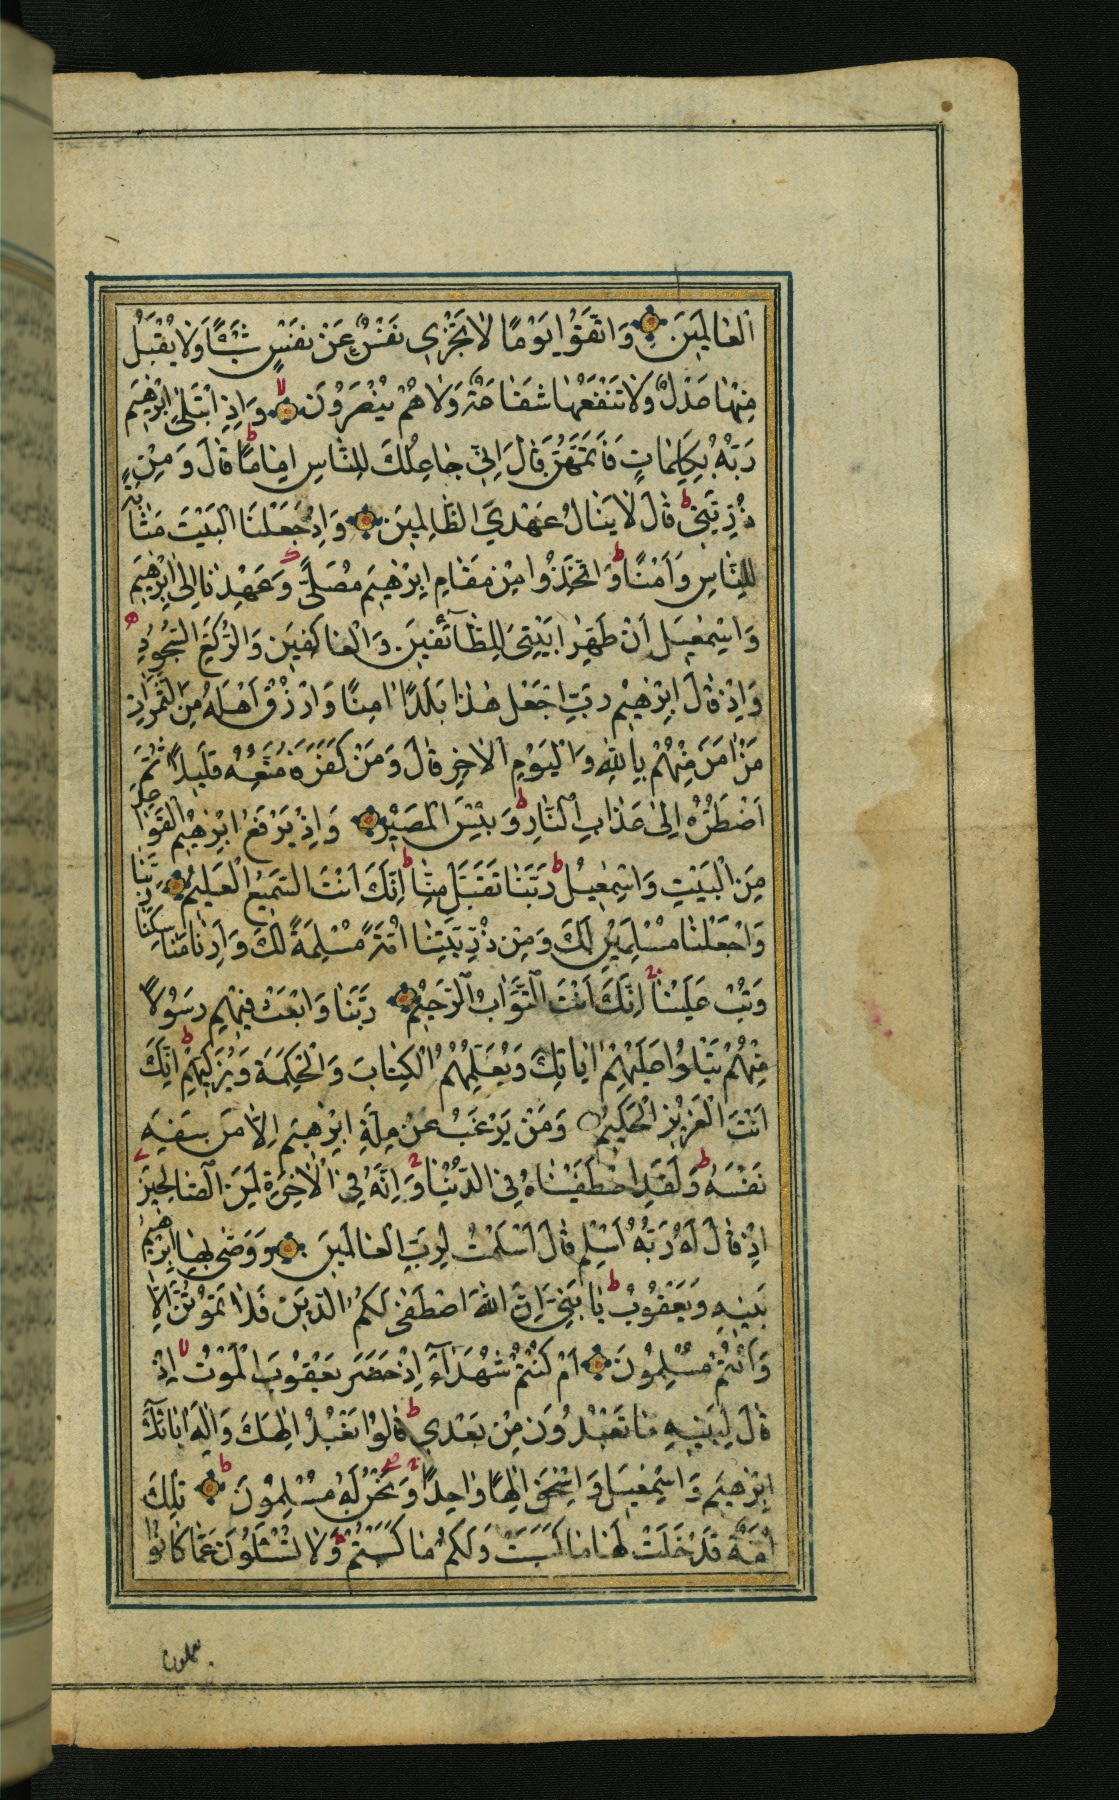 الْعَالَمِينَ وَاتَّقُوا يَوْمًا لَا تَجْزِي نَفْسٌ عَنْ نَفْسٍ شَيْئًا وَلَا يُقْبَلُ
مِنْهَا عَدْلٌ وَلَا تَنْفَعُهَا شَفَاعَةٌ وَلَا هُمْ يُنْصَرُونَ لا وَإِذِ ابْتَلَىٰ إِبْرٰهِيمَ
رَبُّهُ بِكَلِمَاتٍ فَأَتَمَّهُنَّ قَالَ إِنِّي جَاعِلُكَ لِلنَّاسِ إِمَامًا ط قَالَ وَمِنْ
ذُرِّيَّتِي ط قَالَ لَا يَنَالُ عَهْدِيَ الظَّالِمِينَ وَإِذْ جَعَلْنَا الْبَيْتَ مَثَابَةً
لِلنَّاسِ وَأَمْنًا ط وَاتَّخِذُوا مِنْ مَقَامِ إِبْرٰهِيمَ مُصَلًّى ط وَعَهِدْنَا إِلَىٰ إِبْرٰهِيمَ
وَإِسْمٰعِيلَ أَنْ طَهِّرَا بَيْتِيَ لِلطَّآئِفِينَ وَالْعَاكِفِينَ وَالرُّكَّعِ السُّجُودِ
وَإِذْ قَالَ إِبْرٰهِيمُ رَبِّ اجْعَلْ هٰذَا بَلَدًا اٰمِنًا وَارْزُقْ أَهْلَهُ مِنَ الثَّمَرَاتِ
مَنْ اٰمَنَ مِنْهُمْ بِاللّٰهِ وَالْيَوْمِ الْاٰخِرِ قَالَ وَمَنْ كَفَرَ فَأُمَتِّعُهُ قَلِيلًا ثُمَّ
أَضْطَرُّهُ إِلَىٰ عَذَابِ النَّارِ ط وَبِئْسَ الْمَصِيرُ وَإِذْ يَرْفَعُ إِبْرٰهِيمُ الْقَوَاعِدَ
مِنَ الْبَيْتِ وَإِسْمٰعِيلُ ط رَبَّنَا تَقَبَّلْ مِنَّا ط إِنَّكَ أَنْتَ السَّمِيعُ الْعَلِيمُ رَبَّنَا
وَاجْعَلْنَا مُسْلِمَيْنِ لَكَ وَمِنْ ذُرِّيَّتِنَا أُمَّةً مُسْلِمَةً لَكَ وَأَرِنَا مَنَاسِكَنَا
وَتُبْ عَلَيْنَا إِنَّكَ أَنْتَ التَّوَّابُ الرَّحِيمُ رَبَّنَا وَابْعَثْ فِيهِمْ رَسُولًا
مِنْهُمْ يَتْلُوا عَلَيْهِمْ اٰيَاتِكَ وَيُعَلِّمُهُمُ الْكِتَابَ وَالْحِكْمَةَ وَيُزَكِّيهِمْ ط إِنَّكَ
أَنْتَ الْعَزِيزُ الْحَكِيمُ وَمَنْ يَرْغَبُ عَنْ مِلَّةِ إِبْرٰهِيمَ إِلَّا مَنْ سَفِهَ
نَفْسَهُ ط وَلَقَدِ اصْطَفَيْنَاهُ فِي الدُّنْيَا وَإِنَّهُ فِي الْاٰخِرَةِ لَمِنَ الصَّالِحِينَ
إِذْ قَالَ لَهُ رَبُّهُ أَسْلِمْ قَالَ أَسْلَمْتُ لِرَبِّ الْعَالَمِينَ وَوَصَّىٰ بِهَا إِبْرٰهِيمُ
بَنِيهِ وَيَعْقُوبُ ط يَا بَنِيَّ إِنَّ اللّٰهَ اصْطَفَىٰ لَكُمُ الدِّينَ فَلَا تَمُوتُنَّ إِلَّا
وَأَنْتُمْ مُسْلِمُونَ أَمْ كُنْتُمْ شُهَدَآءَ إِذْ حَضَرَ يَعْقُوبَ الْمَوْتُ لا إِذْ
قَالَ لِبَنِيهِ مَا تَعْبُدُونَ مِنْ بَعْدِي ط قَالُوا نَعْبُدُ إِلٰهَكَ وَإِلٰهَ اٰبَآئِكَ
إِبْرٰهِيمَ وَإِسْمٰعِيلَ وَإِسْحٰقَ إِلٰهًا وَاحِدًا وَنَحْنُ لَهُ مُسْلِمُونَ ط تِلْكَ
أُمَّةٌ قَدْ خَلَتْ لَهَا مَا كَسَبَتْ وَلَكُمْ مَا كَسَبْتُمْ ط وَلَا تُسْئَلُونَ عَمَّا كَانُوا
يعملون